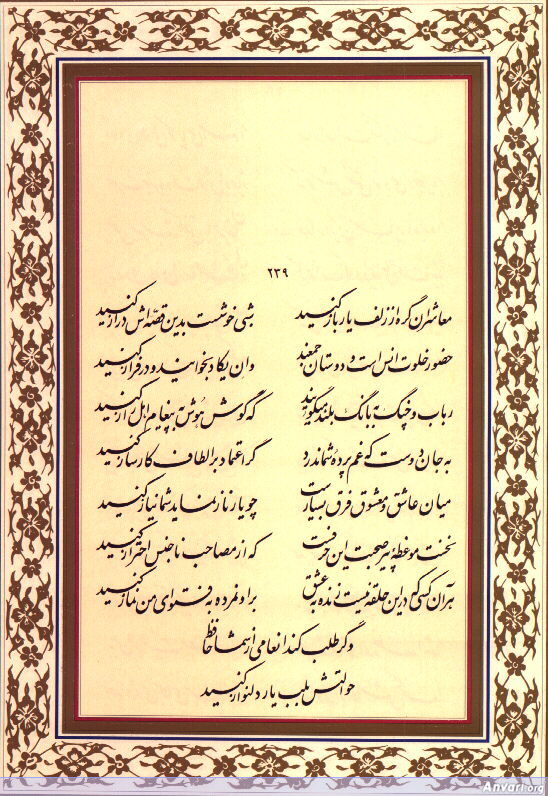 ۲۳۹
معاشران گره از زلف یار باز کنید شبی خوشست بدین قصه‌اش دراز کنید
حضور خلوت انس است و دوستان جمعند وان یکاد بخوانید و در فراز کنید
رباب و چنگ به بانگ بلند می‌گویند که گوش هوش به پیغام اهل راز کنید
به جان دوست که غم پرده شما ندرد گر اعتماد بر الطاف کارساز کنید
میان عاشق و معشوق فرق بسیارست چو یار ناز نماید شما نیاز کنید
نخست موعظه پیر صحبت این حرفست که از مصاحب ناجنس احتراز کنید
هر آن کسی که در این حلقه نیست زنده به عشق بر او نمرده به فتوای من نماز کنید
وگر طلب کند انعامی از شما حافظ
حوالتش به لب یار دلنواز کنید
Anvari.org